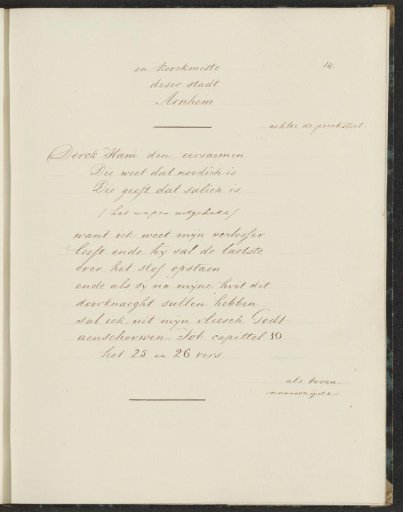 en kerckmeste
14
deser stadt
Arnhem
achter de preekstoel.
Derck Ham den eersaemen
Die weet dat noodich is
Die geeft dat salich is
(het wapen uitgehakt)
want ick weet myn verlosser
leeft ende hy sal de laetste
over het stof opstaen
ende als sy na myne huit dit
doorknaeght sullen hebben
sal ick uit myn vleesch Godt
aenschouwen. Job capittel 19
het 25 en 26 vers.
als boven